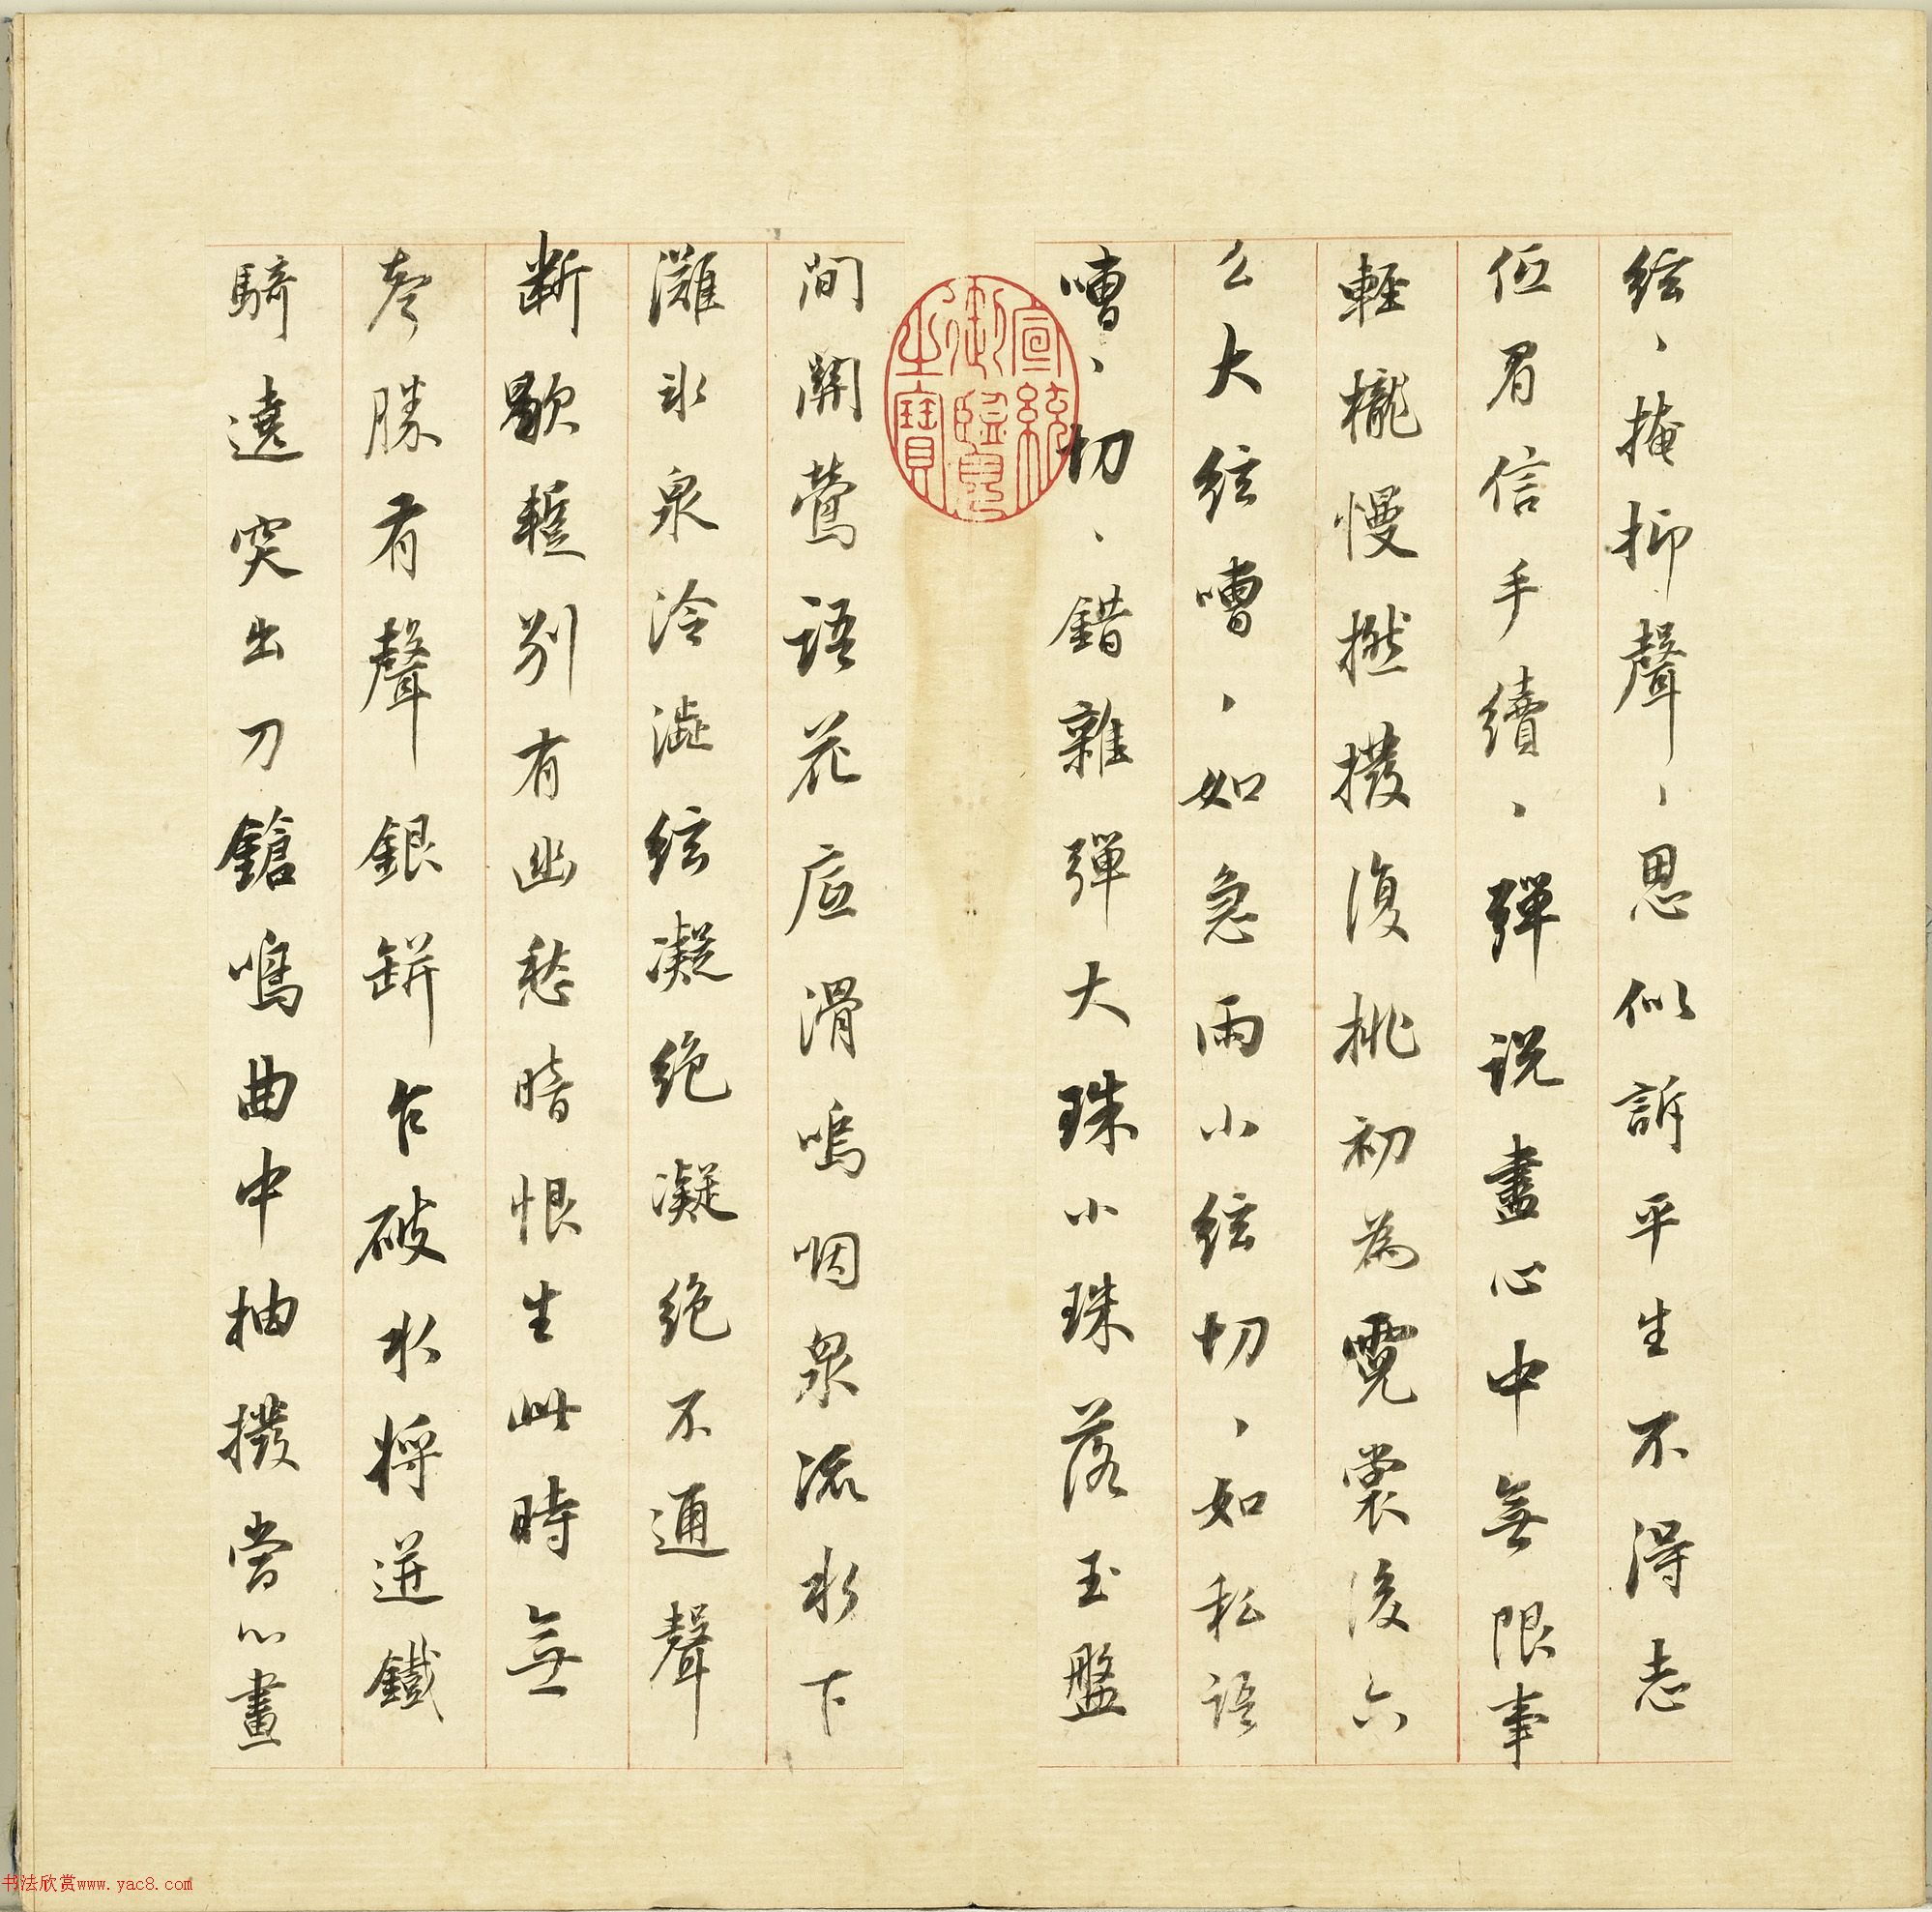 絃、掩抑聲、思似訴平生不得志
低眉信手續、彈説盡心中無限事
輕攏慢撚撥復挑初為霓裳後六
么大絃嘈、如急雨小絃切、如私語
嘈、切、錯雜彈大珠小珠落玉盤
間關鶯語花底滑嗚咽泉流水下
灘氷泉冷澁絃凝絶凝絶不通聲
斷歇蹔別有幽愁暗恨生此時無
聲勝有聲銀缾乍破水將迸鐵
騎遶突出刀鎗鳴曲中抽撥當心畫
宣統
御覽
之寶
书法欣赏www.yac8.com